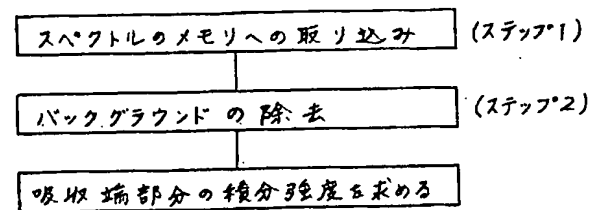 スペクトルのメモリへの取り込み (ステップ1)
バックグラウンドの除去 (ステップ2)
吸収端部分の積分強度を求める